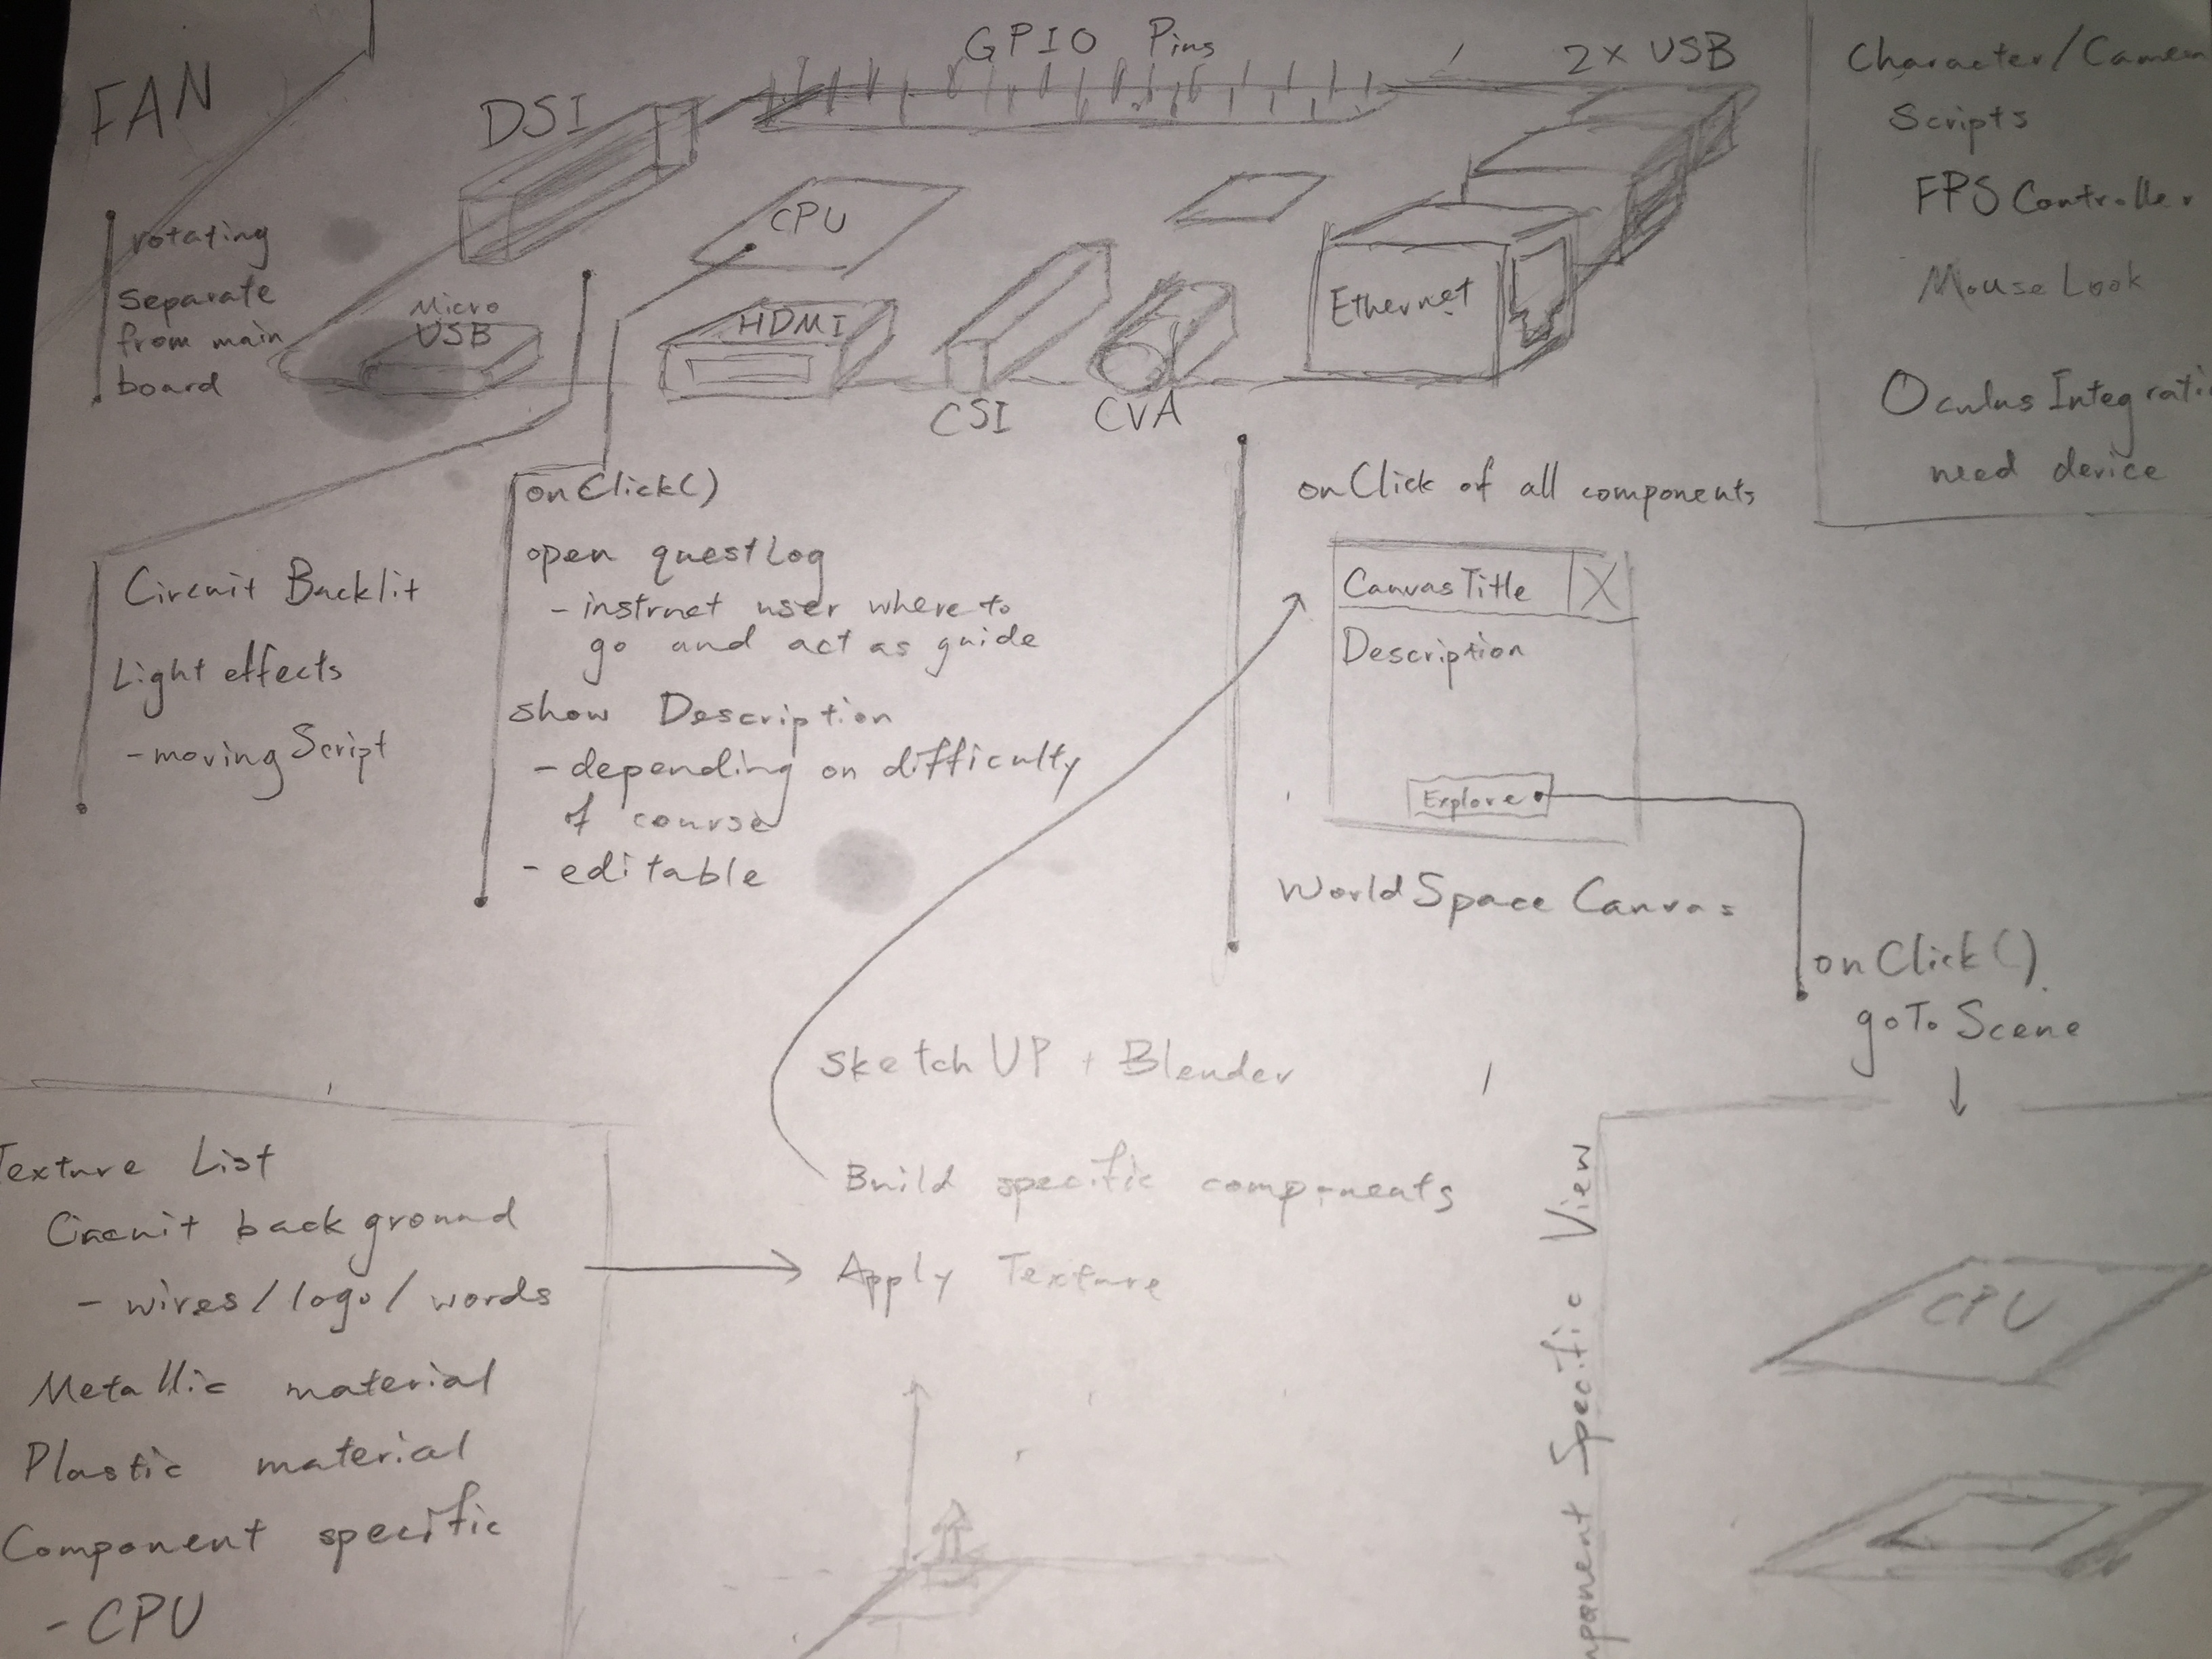 FAN
rotating
separate
from main
board
DSI
GPIO Pins
2x USB
CPU
Micro
USB
HDMI
CSI
CVA
Ethernet
Character/Camera
Scripts
FPS Controller
Mouse Look
Oculus Integrati
need device
Circuit Backlit
Light effects
- moving Script
onClick()
open questLog
- instruct user where to
go and act as guide
show Description
- depending on difficulty
of course
- editable
onClick of all components
Canvas Title X
Description
Explore
World Space Canvas
onClick()
goTo Scene
Sketch UP + Blender
Build specific components
Apply Texture
Texture List
Circuit background
- wires/logo/words
Metallic material
Plastic material
Component specific
- CPU
mponent Specific View
CPU